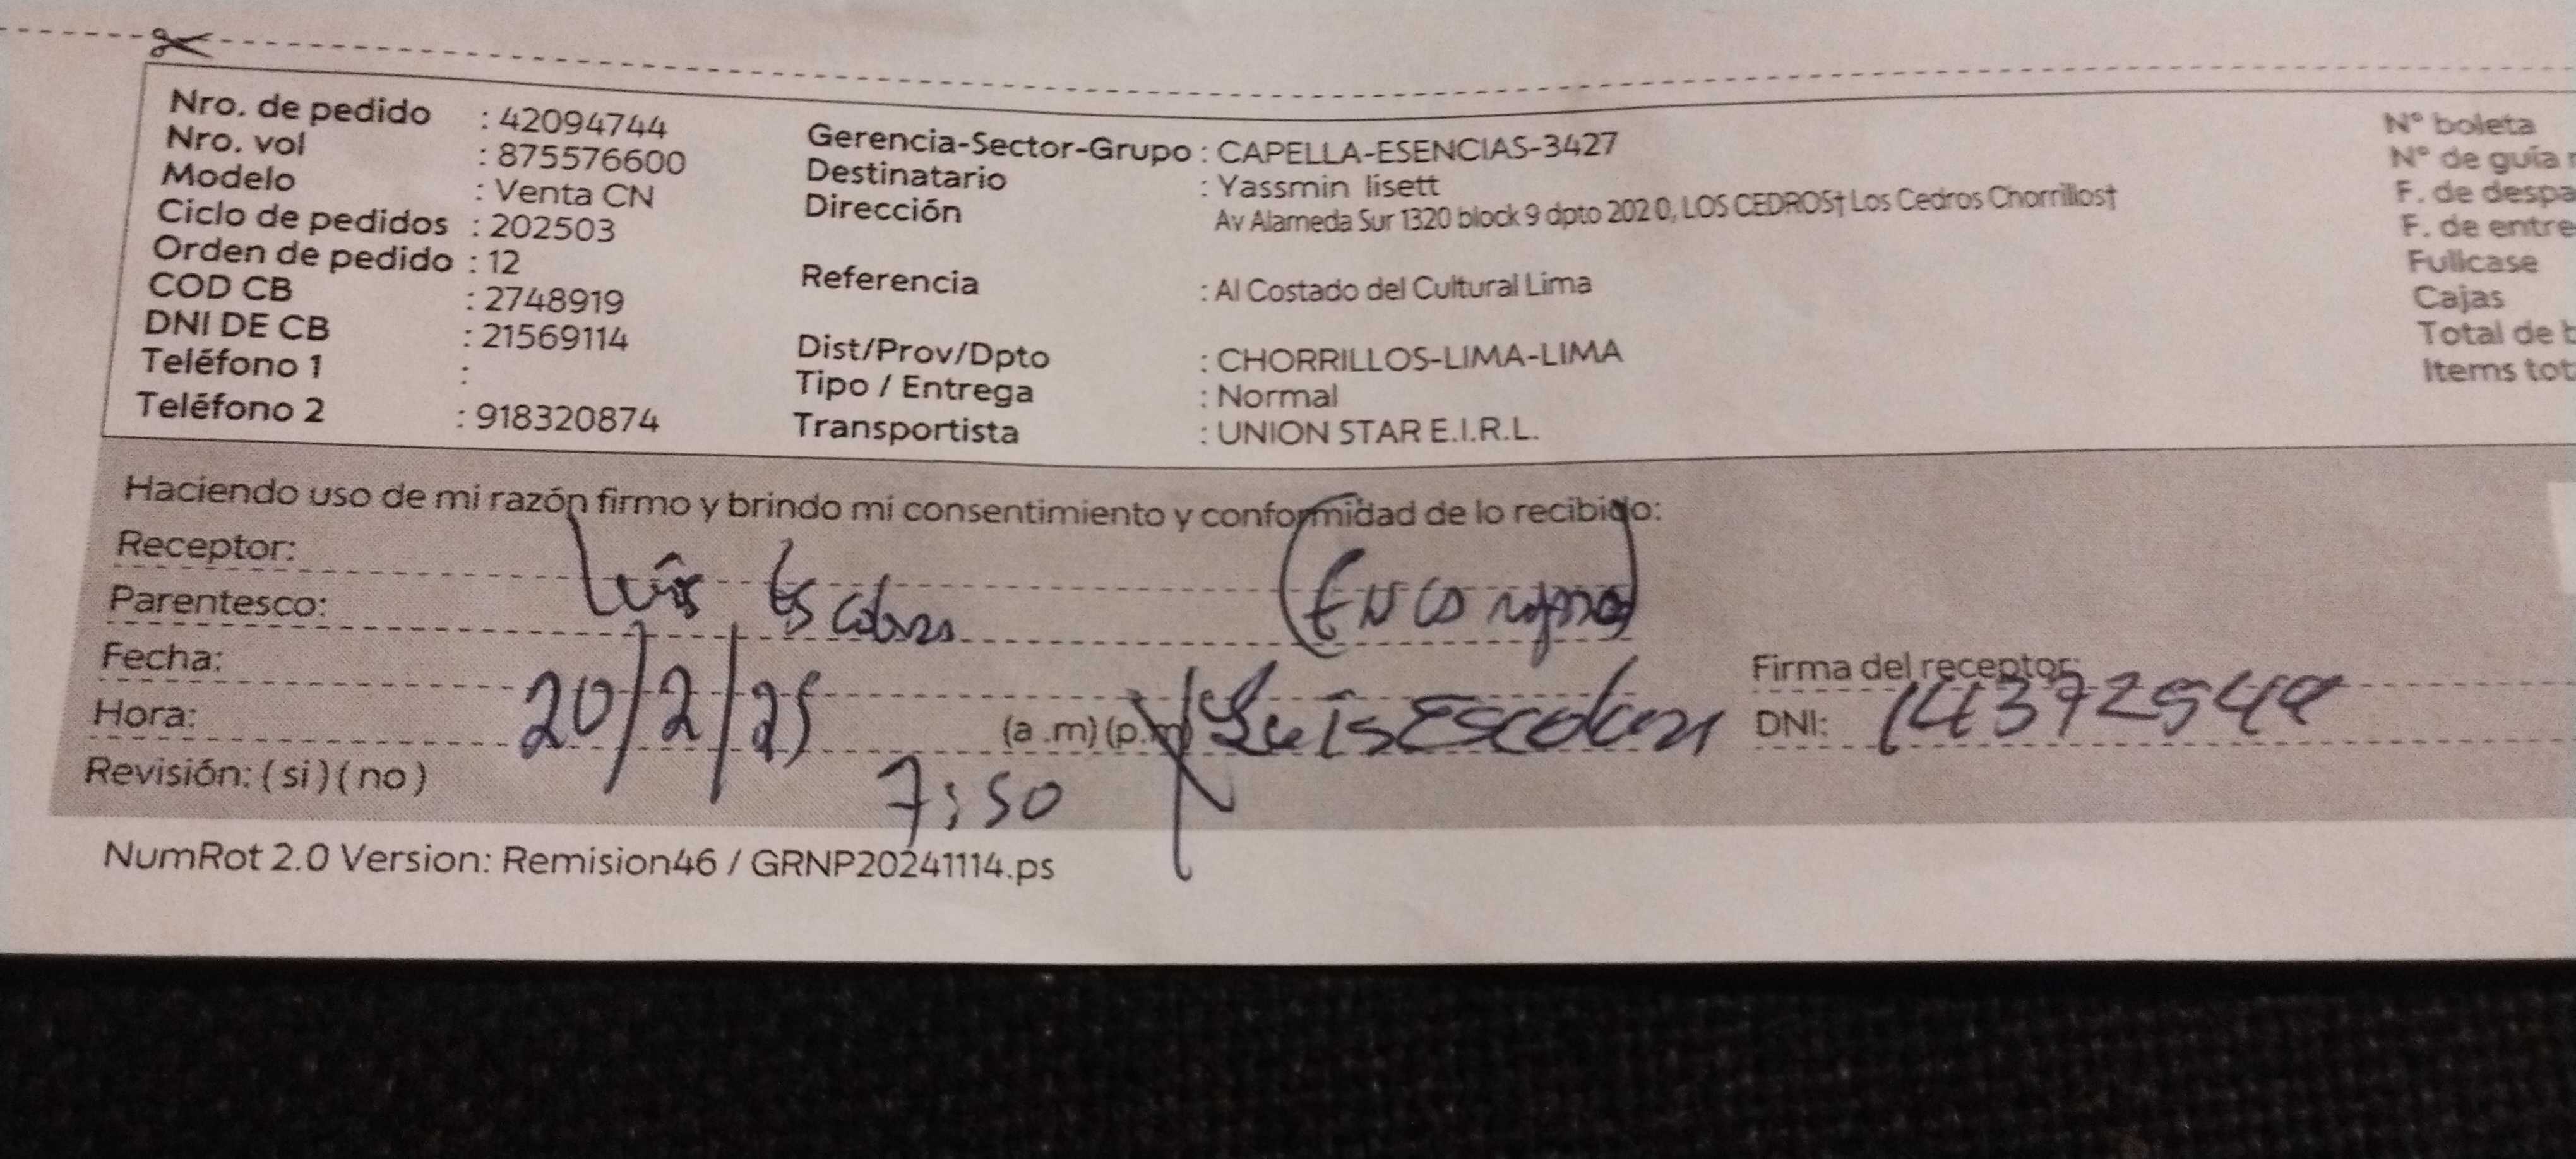 Nro. de pedido : 42094744
Nro. vol : 875576600
Modelo : Venta CN
Ciclo de pedidos : 202503
Orden de pedido : 12
COD CB : 2748919
DNI DE CB : 21569114
Teléfono 1 :
Teléfono 2 : 918320874
Gerencia-Sector-Grupo : CAPELLA-ESENCIAS-3427
Destinatario : Yassmin lisett
Dirección Av Alameda Sur 1320 block 9 dpto 202 0, LOS CEDROS† Los Cedros Chorrillos†
Referencia : Al Costado del Cultural Lima
Dist/Prov/Dpto : CHORRILLOS-LIMA-LIMA
Tipo / Entrega : Normal
Transportista : UNION STAR E.I.R.L.
N° boleta
N° de guía
F. de despa
F. de entre
Fullcase
Cajas
Total de b
Items tot
Haciendo uso de mi razón firmo y brindo mi consentimiento y conformidad de lo recibido:
Receptor: Luis Escobar
Parentesco:
Fecha: 20/2/25
Hora: (a .m) (p.m) Luis Escobar
7:50
Firma del receptor:
DNI:
Revisión: ( si ) ( no )
NumRot 2.0 Version: Remision46 / GRNP20241114.ps